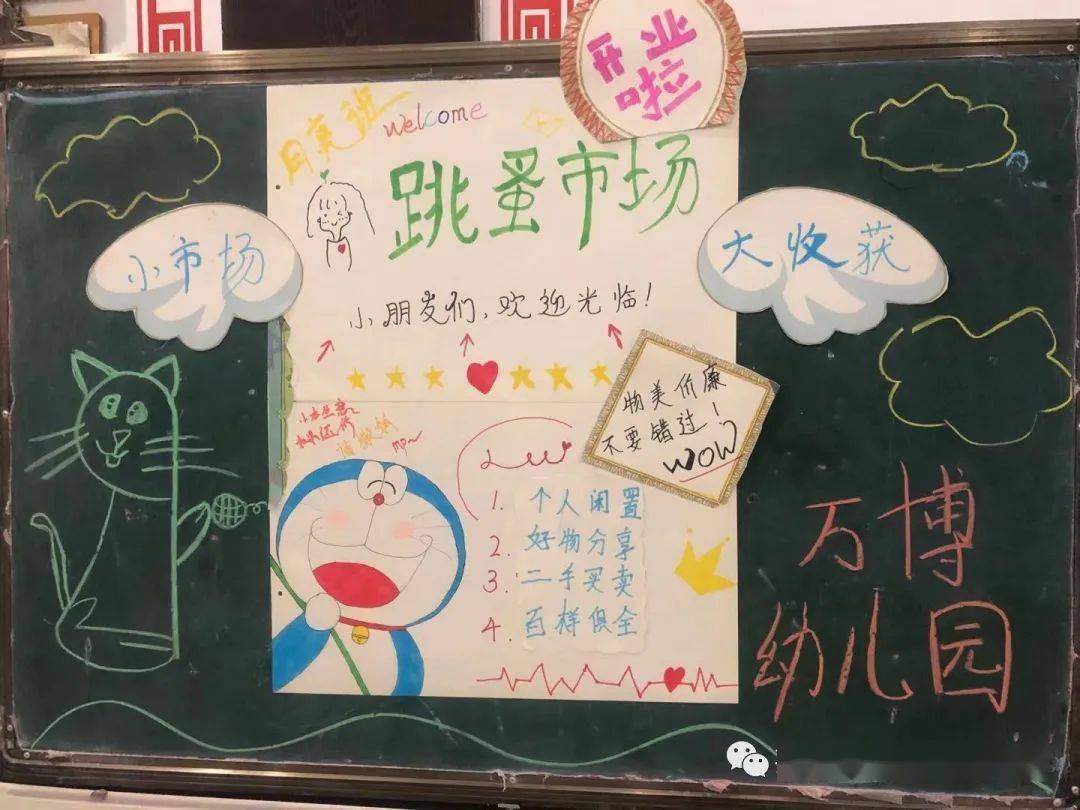 开业
啦
welcome
跳蚤市场
小市场
大收获
小朋友们、欢迎光临!
物美价廉
不要错过!
WOW
小本生意
1. 个人闲置
2. 好物分享
3. 二手买卖
4. 百样俱全
万博
幼儿园